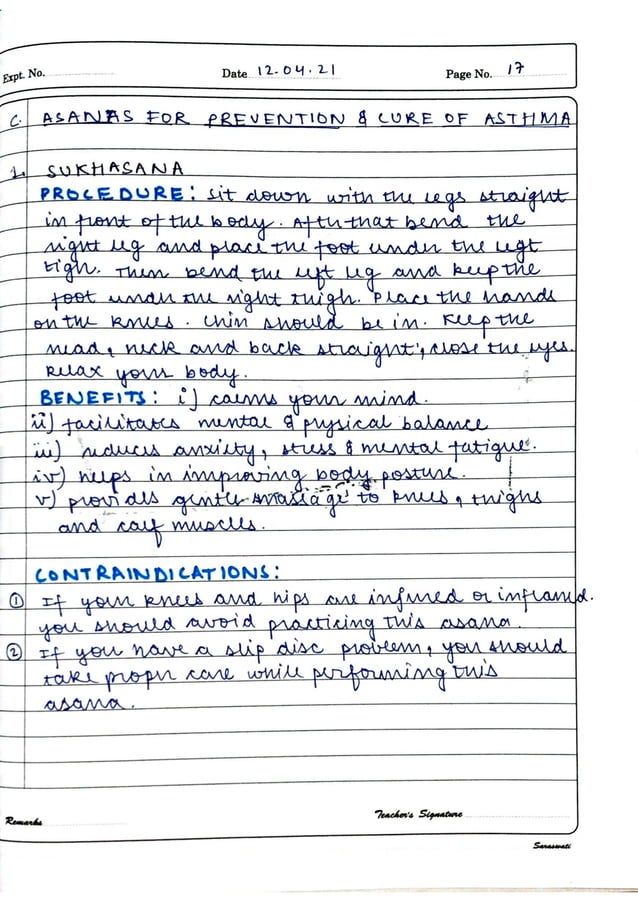 Expt. No.
Date 12.04.21
Page No. 17
C. ASANAS FOR PREVENTION & CURE OF ASTHMA
1. SUKHASANA
PROCEDURE: Sit down with the legs straight
in front of the body. After that bend the
right leg and place the foot under the legt
tigh. Then bend the left leg and keep the
foot under the right thigh. Place the hands
on the knees. Chin should be in. Keep the
head, neck and back straight, close the eyes.
Relax your body.
BENEFITS: i) calms your mind.
ii) facilitates mental & physical balance
iii) reduces anxiety, stress & mental fatigue.
iv) helps in improving body posture.
v) provides gentle massage to knees, thighs
and calf muscles.
CONTRAINDICATIONS:
① If your knees and hips are injured or inflamed.
you should avoid practicing this asana.
② If you have a slip disc problem, you should
take proper care while performing this
asana.
Remarks
Teacher's Signature
Saraswati